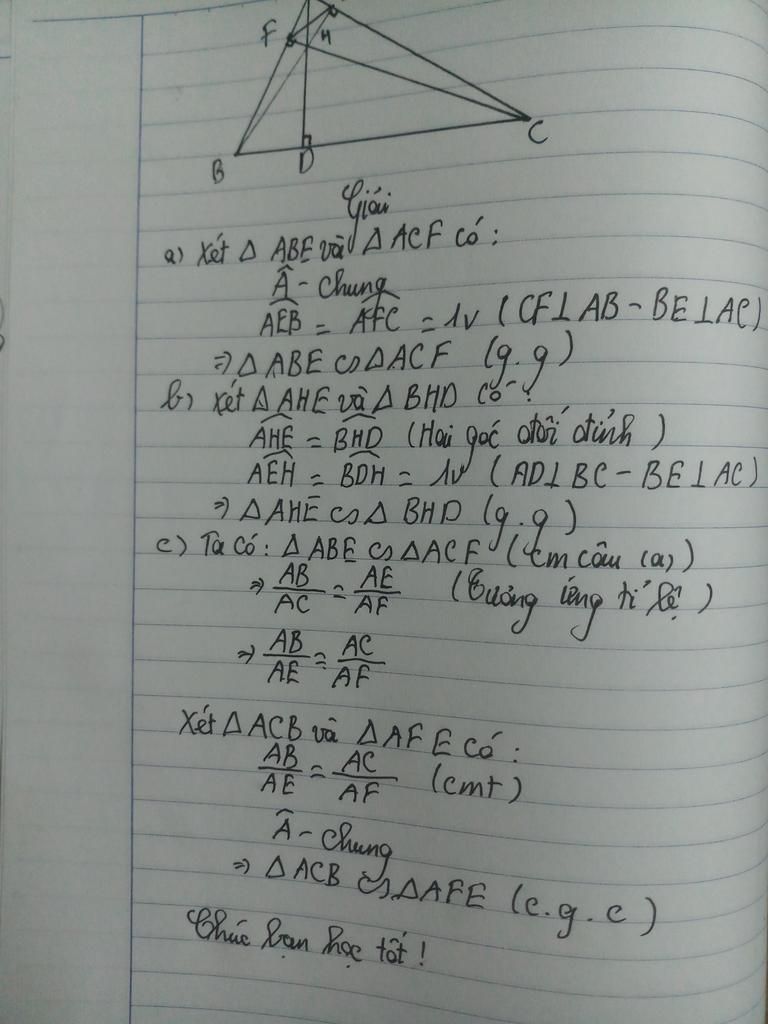 F
H
B
D
C
Giải
a) Xét Δ ABE và Δ ACF có:
Â - chung
AEB = AFC = 1v (CF⊥AB - BE⊥AC)
⇒ Δ ABE ∽ Δ ACF (g.g)
b) Xét Δ AHE và Δ BHD có:
AHE = BHD (Hai góc đối đỉnh)
AEH = BDH = 1v (AD⊥BC - BE⊥AC)
⇒ Δ AHE ∽ Δ BHD (g.g)
c) Ta có: Δ ABE ∽ Δ ACF (cm câu (a))
⇒ AB/AC = AE/AF (Tương ứng tỉ lệ)
⇒ AB/AE = AC/AF
Xét Δ ACB và Δ AFE có:
AB/AE = AC/AF (cmt)
Â - chung
⇒ Δ ACB ∽ Δ AFE (c.g.c)
Chúc bạn học tốt!